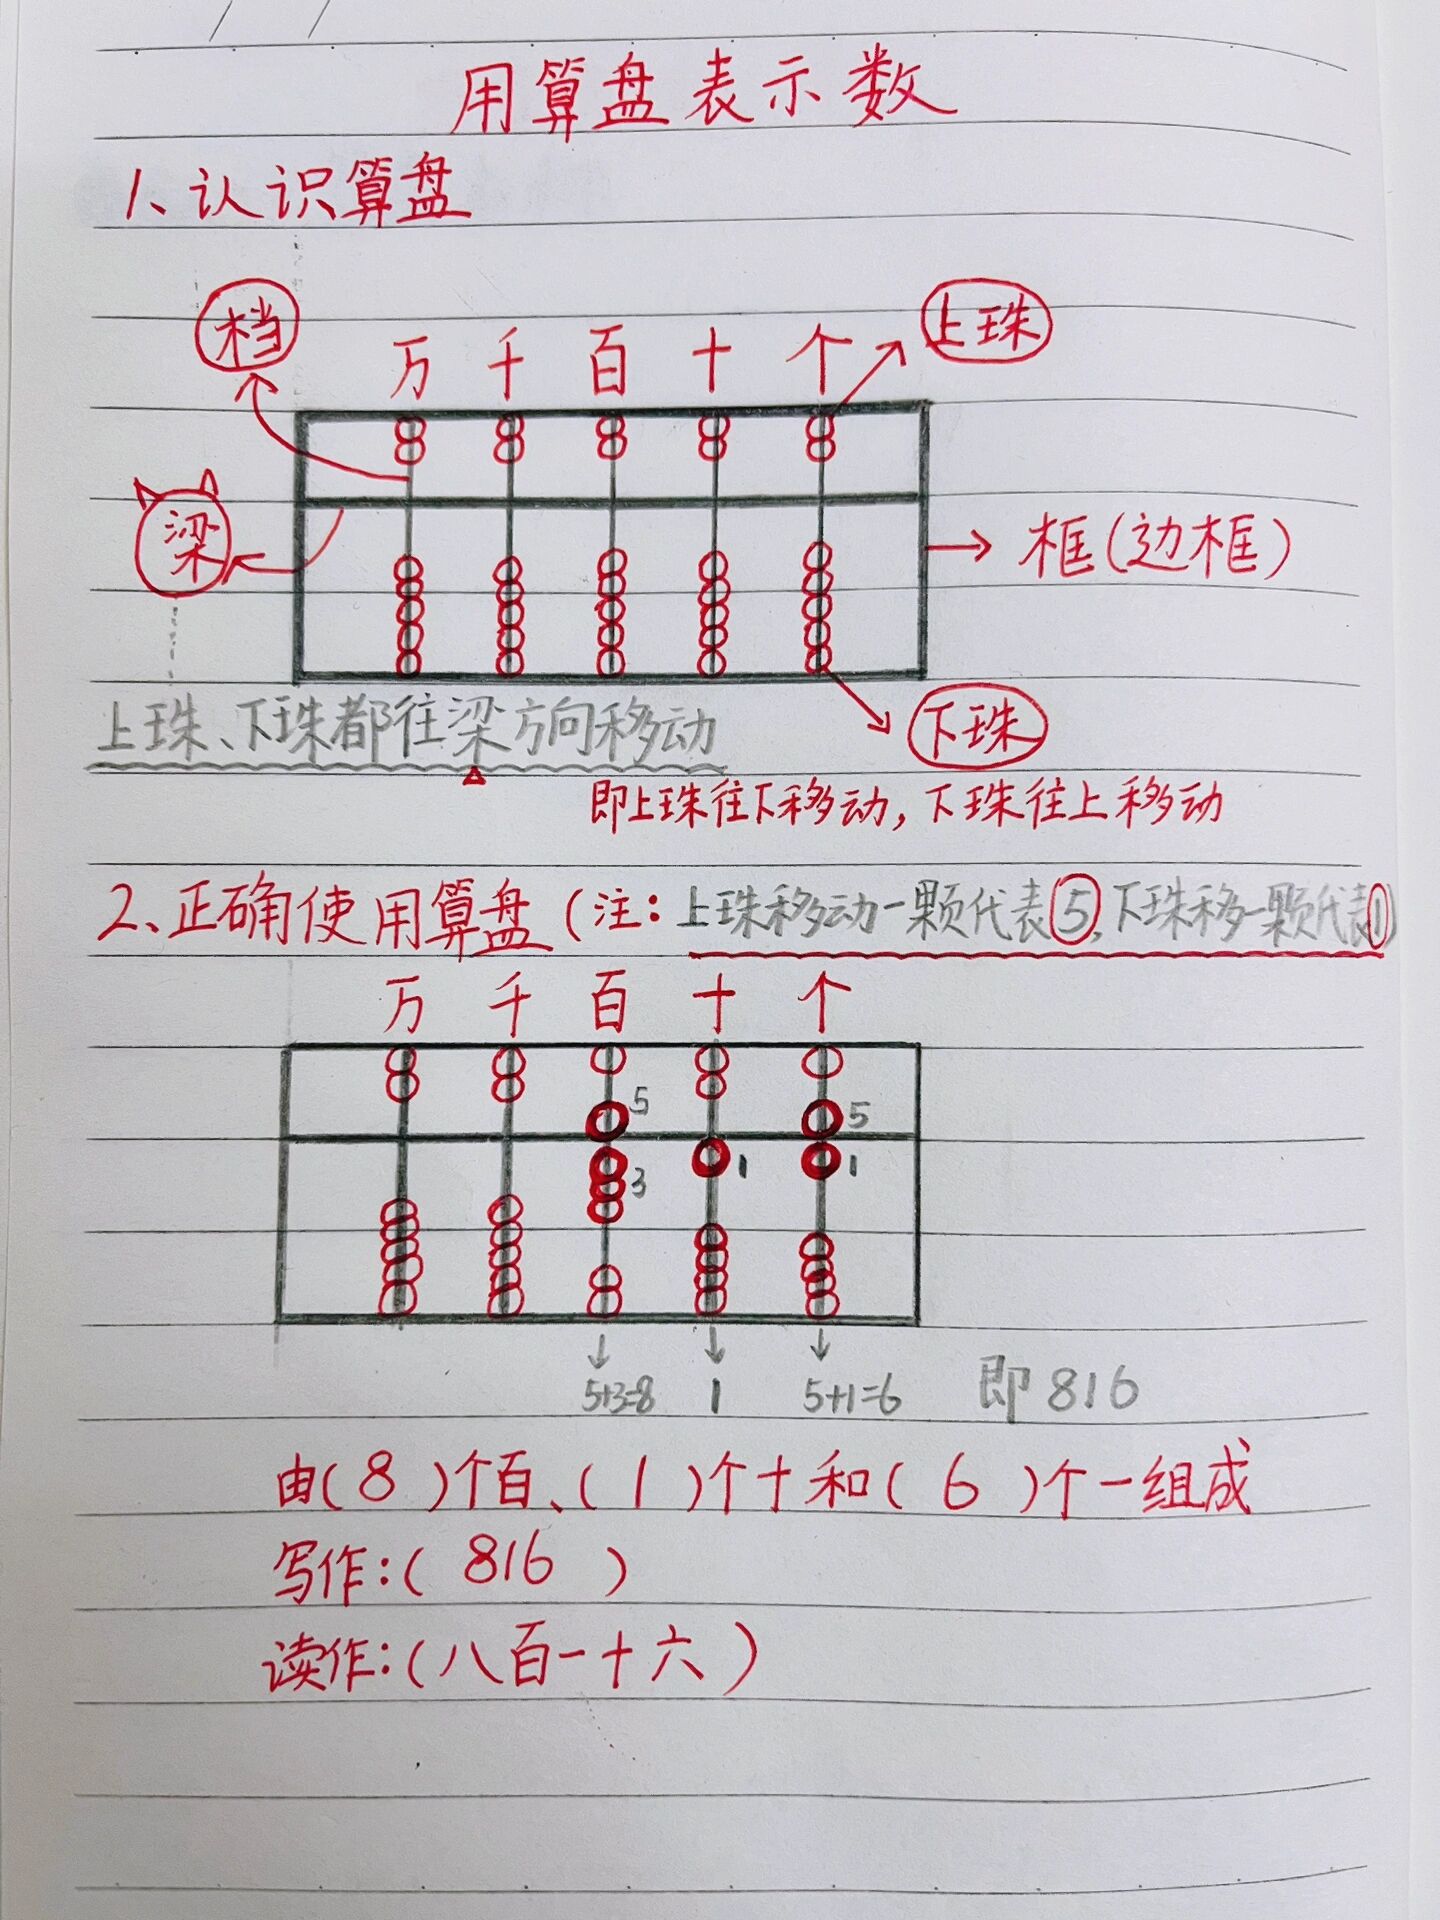 用算盘表示数
1、认识算盘
档
万 千 百 十 个
上珠
梁
框(边框)
下珠
上珠、下珠都往梁方向移动
即上珠往下移动,下珠往上移动
2、正确使用算盘(注:上珠移动一颗代表5,下珠移一颗代表1)
万 千 百 十 个
5 5
3 1 1
5+3=8 1 5+1=6 即816
由(8)个百、(1)个十和(6)个一组成
写作:(816)
读作:(八百一十六)